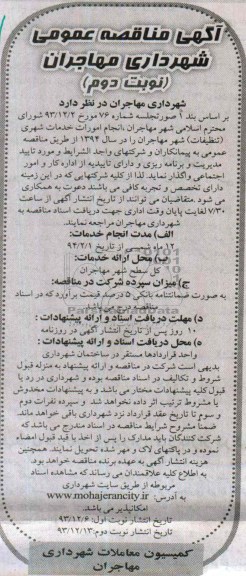 آگهی مناقصه عمومی
شهرداری مهاجران
(نوبت دوم)
شهرداری مهاجران در نظر دارد
بر اساس بند ۱ صورتجلسه شماره ۷۶ مورخ ۹۳/۱۲/۲ شورای
محترم اسلامی شهر مهاجران ،انجام امورات خدمات شهری
(تنظیفات) شهر مهاجران را در سال ۱۳۹۴ از طریق مناقصه
عمومی به پیمانکاران و شرکتهای واجد الشرایط و مورد تایید
مدیریت و برنامه ریزی و دارای تاییدیه از اداره کار و امور
اجتماعی واگذار نماید. لذا از کلیه شرکتهایی که در این زمینه
دارای تخصص و تجربه کافی می باشند دعوت به همکاری
می شود .متقاضیان می توانند از تاریخ انتشار آگهی از ساعت
۷/۳۰ لغایت پایان وقت اداری جهت دریافت اسناد مناقصه به
شهرداری مهاجران مراجعه نمایند.
الف) مدت انجام خدمات:
ماه شمسی از تاریخ ۹۴/۲/۱
ب) محل ارائه خدمات:
کل سطح شهر مهاجران
ج) میزان سپرده شرکت در مناقصه:
به صورت ضمانتنامه بانکی ۵ درصد قیمت برآورد که در اسناد
مناقصه درج می باشد
د) مهلت دریافت اسناد و ارائه پیشنهادات :
۱۰ روز پس از تاریخ انتشار آگهی در روزنامه
ه) محل دریافت اسناد و ارائه پیشنهادات :
واحد قراردادها مستقر در ساختمان شهرداری
بدیهی است شرکت در مناقصه و ارائه پیشنهاد به منزله قبول
شروط و تکالیف در اسناد مناقصه بوده و شهرداری در رد یا
قبول کلیه پیشنهادات مختار می باشد و به پیشنهادات مخدوش
یا مشروط ترتیب اثر داده نخواهد شد و سپرده نفرات دوم
و سوم تا تاریخ عقد قرارداد نزد شهرداری باقی خواهد ماند.
ضمناً مشروح شرایط مناقصه در اسناد مندرج می باشد که
شرکت کنندگان باید مدارک را پس از اخذ با قید قبول امضاء
نموده و در پاکتهای لاک و مهر شده تحویل نمایند. همچنین
هزینه انتشار آگهی به عهده برنده مناقصه خواهد بود.
به اطلاع کلیه علاقمندان می رساند که مشاهده اسناد
مربوطه از طریق سایت شهرداری
به آدرس: www.mohajerancity.ir
امکانپذیر می باشد.
تاریخ انتشار نوبت اول: ۹۳/۱۲/۶
تاریخ انتشار نوبت دوم:۹۳/۱۲/۱۳
کمیسیون معاملات شهرداری
مهاجران